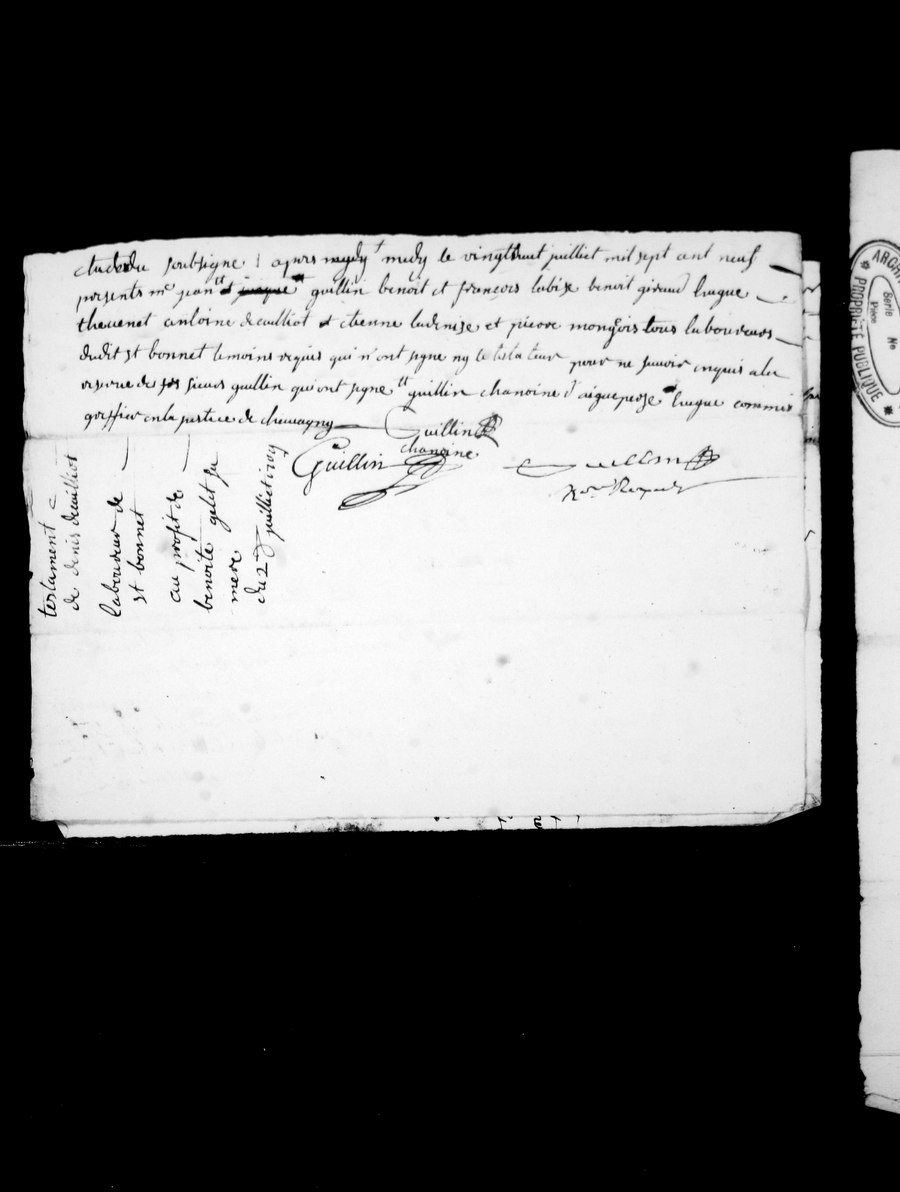 soubsigne apres mydy le vingthuit juilliet mil sept cent neuf
presents mr jean guillin benoit et francois labize benoit giraud hugue
thevenet antoine decuilliot et etienne ladenize et pierre mongois tous laboureurs
dudit st bonnet temoins requis qui n'ont signe ny le testateur pour ne savoir enquis a la
reserve des srs sieurs guillin qui ont signe guillin chanoine d'aigueperse hugue commis
greffier en la justice de chevagny
Guillin
chanoine
Guillin
Guillin
testament
de denis decuilliot
laboureur de
st bonnet
au profit de
benoite gelet sa
mere
du 28 juilliet 1709
ARCHI
Serie
Piece
No
PROPRIÉTÉ PUBLIQUE